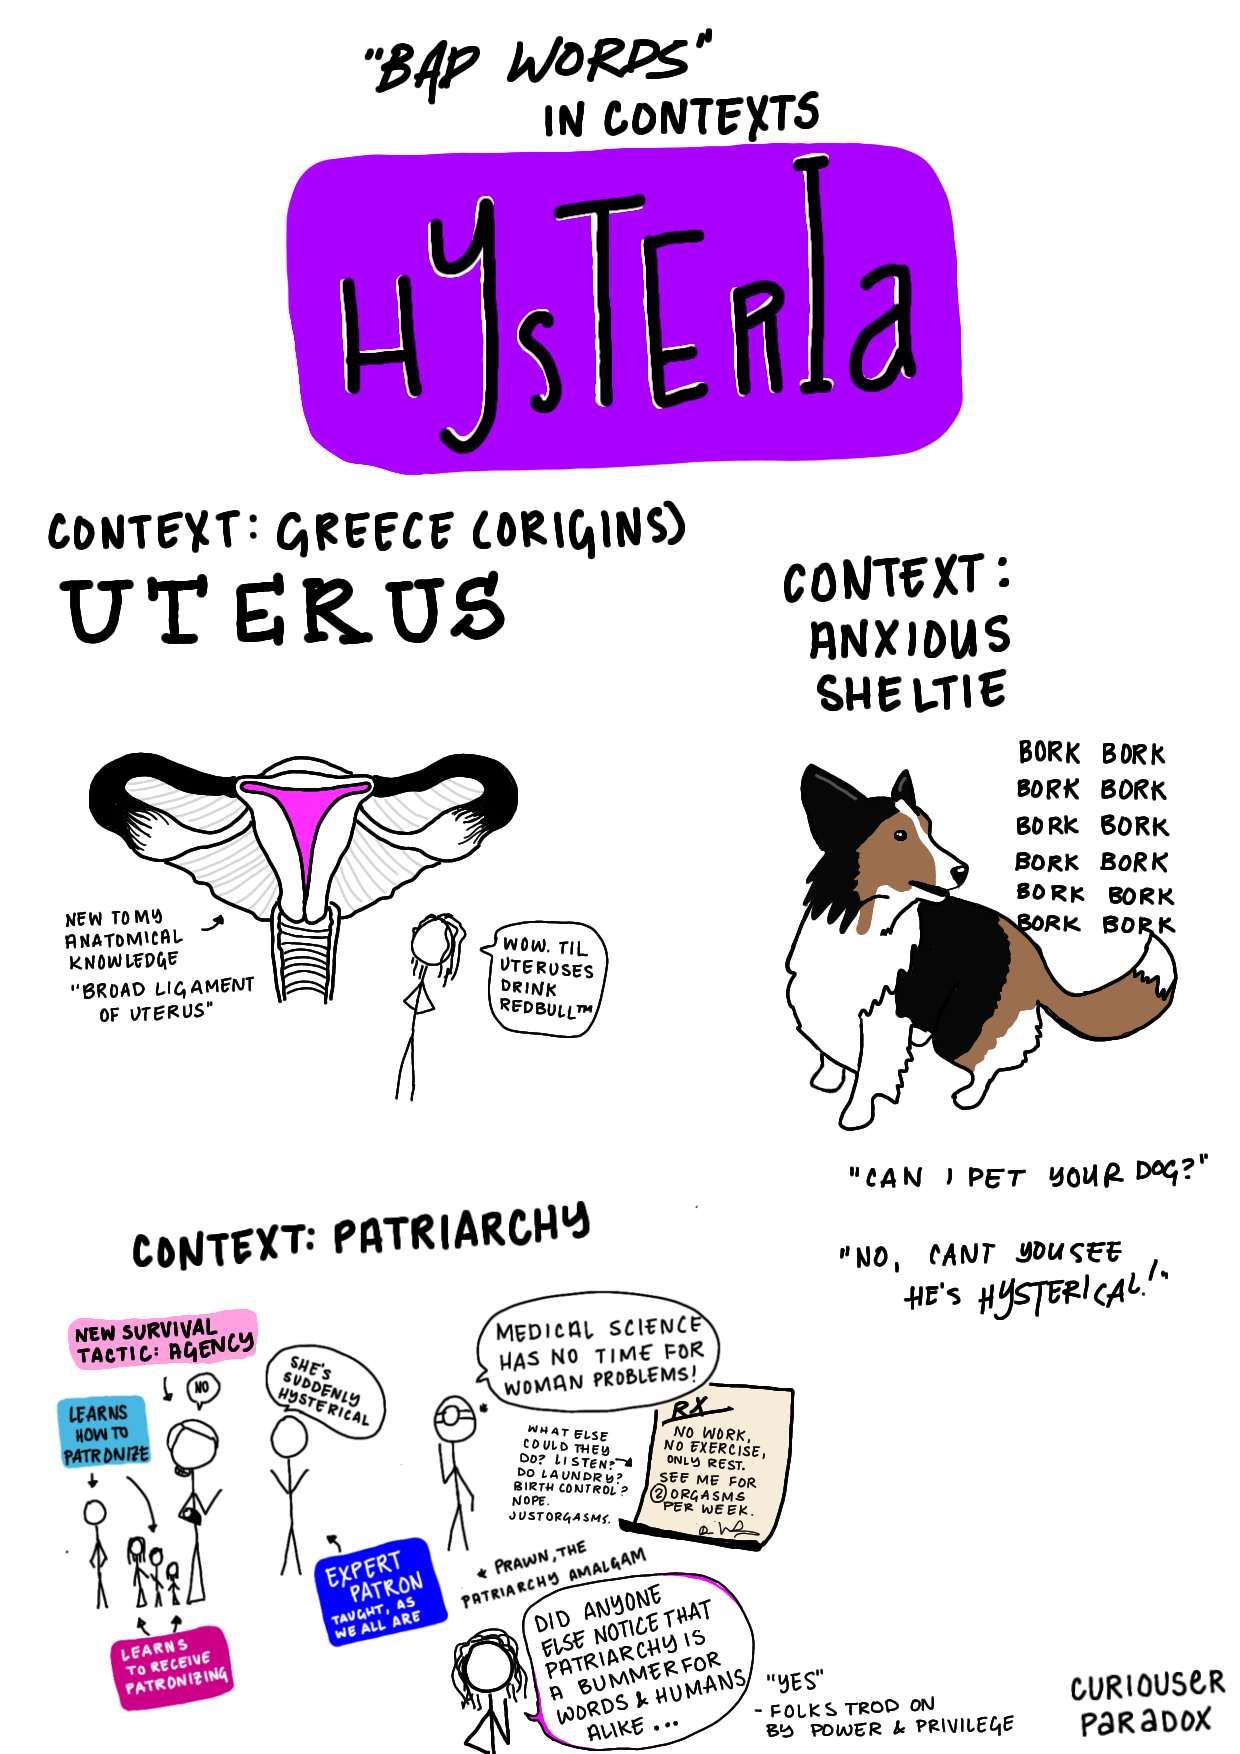 "BAD WORDS"
IN CONTEXTS
HYSTERIA
CONTEXT: GREECE (ORIGINS)
UTERUS
NEW TO MY
ANATOMICAL
KNOWLEDGE
"BROAD LIGAMENT
OF UTERUS"
WOW. TIL
UTERUSES
DRINK
REDBULL™
CONTEXT:
ANXIOUS
SHELTIE
BORK BORK
BORK BORK
BORK BORK
BORK BORK
BORK BORK
BORK BORK
"CAN I PET YOUR DOG?"
"NO, CANT YOU SEE
HE'S HYSTERICAL!"
CONTEXT: PATRIARCHY
NEW SURVIVAL
TACTIC: AGENCY
NO
LEARNS
HOW TO
PATRONIZE
SHE'S
SUDDENLY
HYSTERICAL
LEARNS
TO RECEIVE
PATRONIZING
EXPERT
PATRON
TAUGHT, AS
WE ALL ARE
MEDICAL SCIENCE
HAS NO TIME FOR
WOMAN PROBLEMS!
*
WHAT ELSE
COULD THEY
DO? LISTEN?
DO LAUNDRY?
BIRTH CONTROL?
NOPE.
JUST ORGASMS.
RX
NO WORK,
NO EXERCISE,
ONLY REST.
SEE ME FOR
2 ORGASMS
PER WEEK.
* PRAWN, THE
PATRIARCHY AMALGAM
DID ANYONE
ELSE NOTICE THAT
PATRIARCHY IS
A BUMMER FOR
WORDS & HUMANS
ALIKE...
"YES"
- FOLKS TROD ON
BY POWER & PRIVILEGE
CURIOUSER
PARADOX